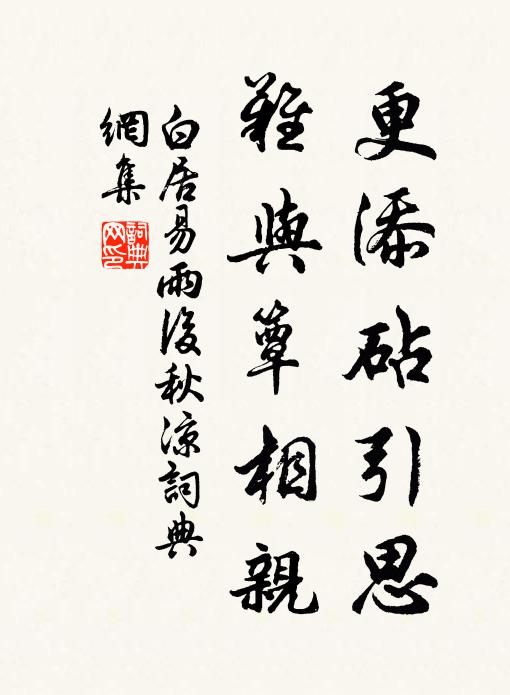 更添砧引思
難與簟相親
白居易雨後秋涼詞典
網集
詞典
网印